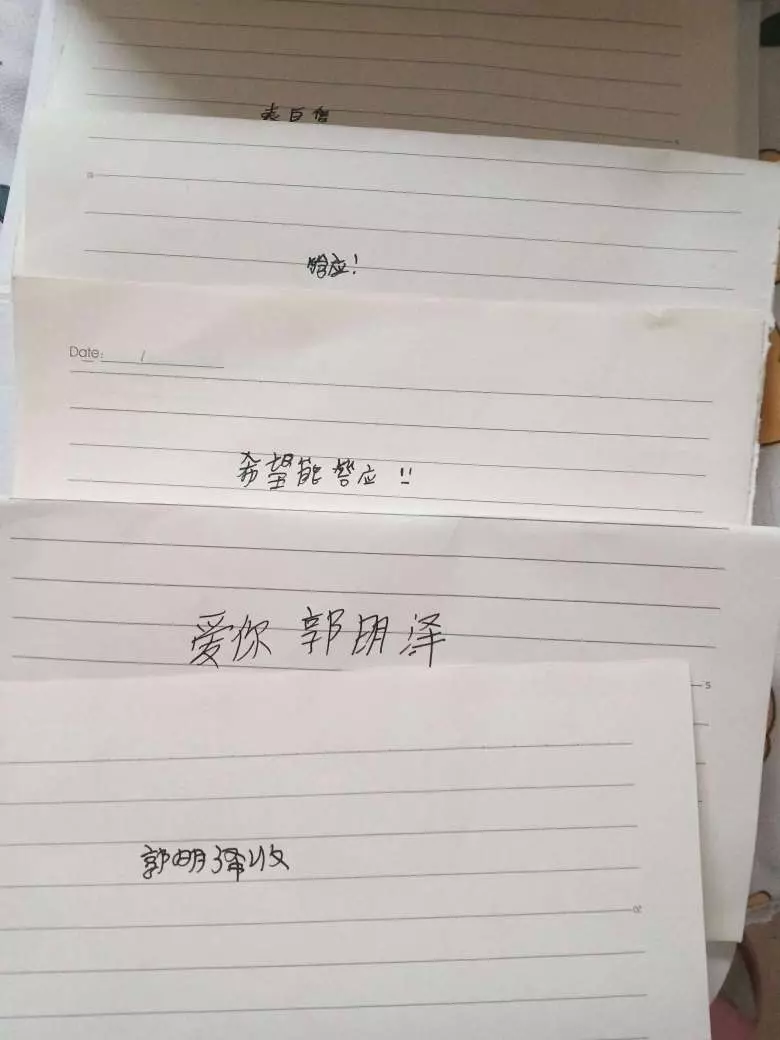 表白信
答应!
Date: /
希望能答应!!
爱你 郭明泽
5
郭明泽收
20